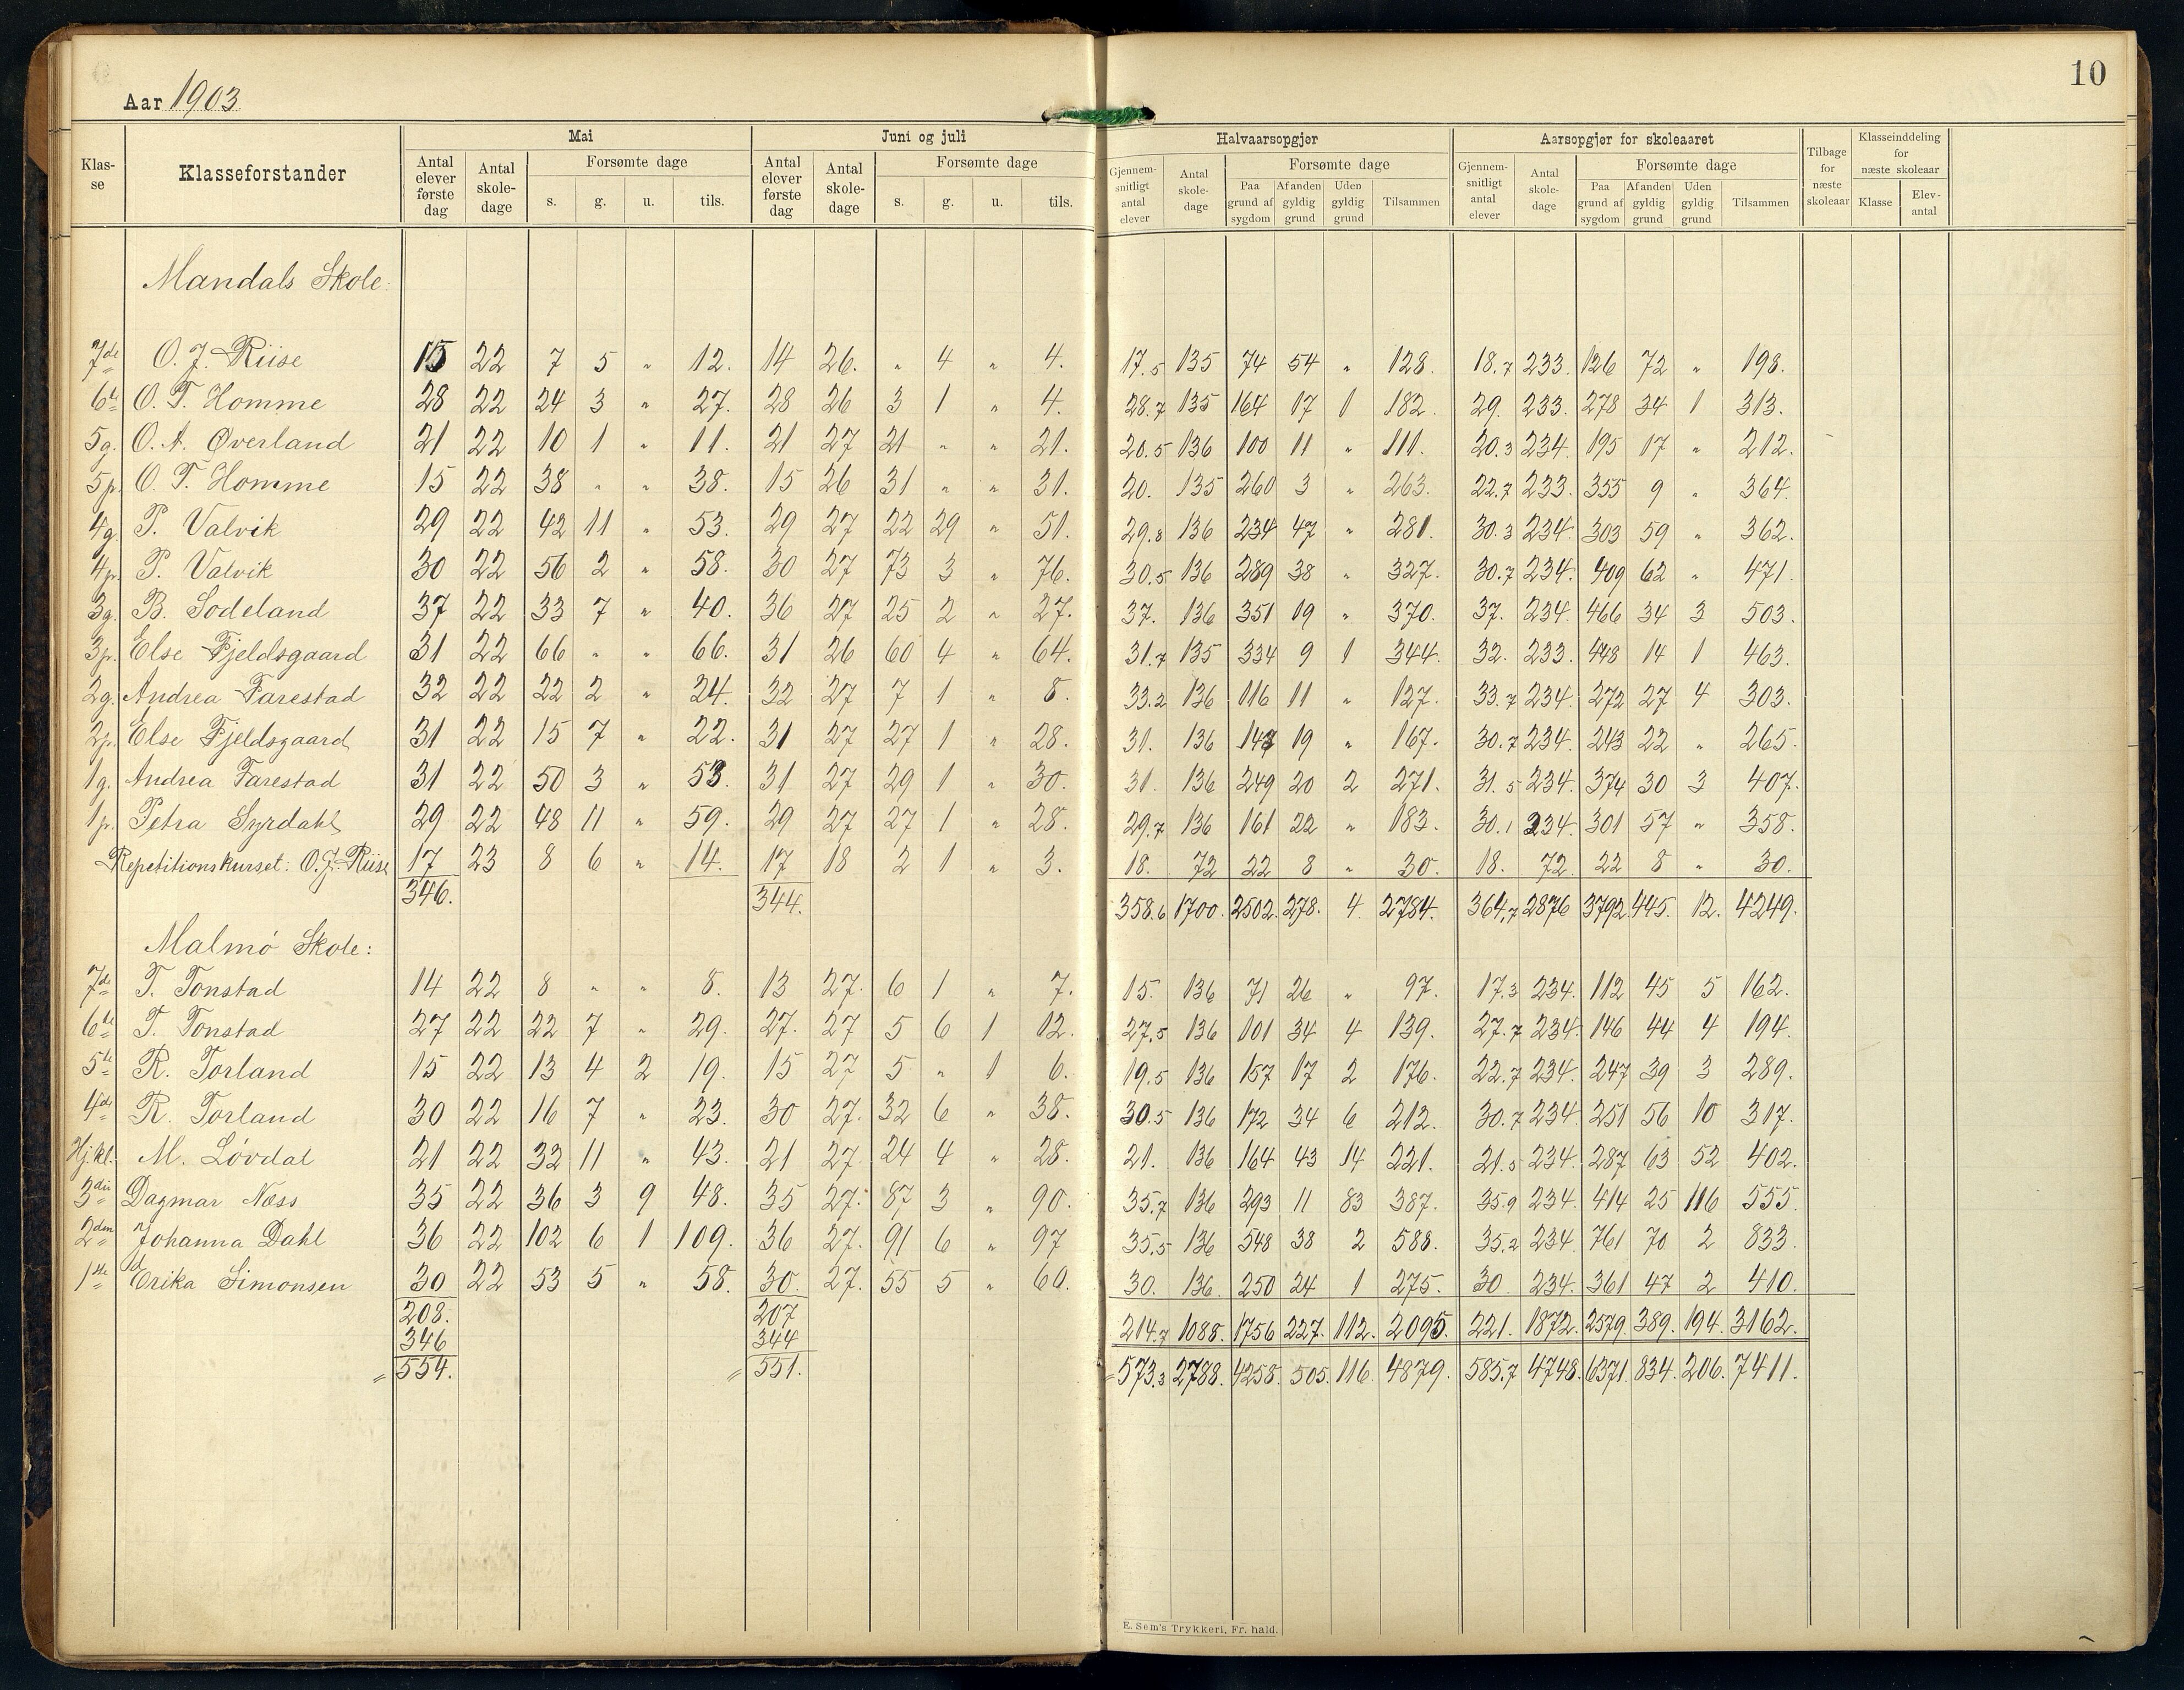 10
Aar 1903
Klas-se | Klasseforstander | Mai | Juni og juli | Halvaarsopgjør | Aarsopgjør for skoleaaret | Tilbage for næste skoleaar | Klasseinddeling for næste skoleaar
Antal elever første dag | Antal skole-dage | Forsømte dage | Antal elever første dag | Antal skole-dage | Forsømte dage | Gjennem-snitligt antal elever | Antal skole-dage | Forsømte dage | Gjennem-snitligt antal elever | Antal skole-dage | Forsømte dage | Klasse | Elev-antal
s. | g. | u. | tils. | s. | g. | u. | tils. | Paa grund af sygdom | Af anden gyldig grund | Uden gyldig grund | Tilsammen | Paa grund af sygdom | Af anden gyldig grund | Uden gyldig grund | Tilsammen
Mandals Skole:
7de O. J. Riise 15 22 7 5 " 12. 14 26. " 4 " 4. 17.5 135 74 54 " 128. 18.7 233. 126 72 " 198.
6te O. T. Homme 28 22 24 3 " 27. 28 26 3 1 " 4. 28.7 135 164 17 1 182. 29. 233. 278 34 1 313.
5g. O. A. Øverland 21 22 10 1 " 11. 21 27 21 " " 21. 20.5 136 100 11 " 111. 20.3 234. 195 17 " 212.
5p. O. T. Homme 15 22 38 " " 38. 15 26 31 " " 31. 20. 135 260 3 " 263. 22.7 233. 355 9 " 364.
4g. P. Valvik 29 22 42 11 " 53. 29 27 22 29 " 51. 29.8 136 234 47 " 281. 30.3 234. 303 59 " 362.
4p. P. Valvik 30 22 56 2 " 58. 30 27 73 3 " 76. 30.5 136 289 38 " 327. 30.7 234. 409 62 " 471.
3g. B. Sodeland 37 22 33 7 " 40. 36 27 25 2 " 27. 37. 136 351 19 " 370. 37. 234. 466 34 3 503.
3p. Else Fjeldsgaard 31 22 66 " " 66. 31 26 60 4 " 64. 31.7 135 334 9 1 344. 32. 233. 448 14 1 463.
2g. Andrea Farestad 32 22 22 2 " 24. 32 27 7 1 " 8. 33.2 136 116 11 " 127. 33.7 234. 272 27 4 303.
2p. Else Fjeldsgaard 31 22 15 7 " 22. 31 27 27 1 " 28. 31. 136 148 19 " 167. 30.7 234. 243 22 " 265.
1g. Andrea Farestad 31 22 50 3 " 53. 31 27 29 1 " 30. 31. 136 249 20 2 271. 31.5 234. 374 30 3 407.
1p. Petra Syrdahl 29 22 48 11 " 59. 29 27 27 1 " 28. 29.7 136 161 22 " 183. 30.1 234. 301 57 " 358.
Repetitionskurset: O. J. Riise 17 23 8 6 " 14. 17 18 2 1 " 3. 18. 72 22 8 " 30. 18. 72. 22 8 " 30.
346. 344. 358.6 1700. 2502. 278. 4. 2784. 364.7 2876 3792 445. 12. 4249.
Malmø Skole:
7de T. Tonstad 14 22 8 " " 8. 13 27. 6 1 " 7. 15. 136 71 26 " 97. 17.3 234. 112 45 5 162.
6te T. Tonstad 27 22 22 7 " 29. 27. 27 5 6 1 12. 27.5 136 101 34 4 139. 27.7 234. 146 44 4 194.
5te R. Torland 15 22 13 4 2 19. 15 27 5 " 1 6. 19.5 136 157 17 2 176. 22.7 234. 247 39 3 289.
4de R. Torland 30 22 16 7 " 23. 30 27. 32 6 " 38. 30.5 136 172 34 6 212. 30.7 234. 251 56 10 317.
Hj.kl. M. Løvdal 21 22 32 11 " 43. 21 27. 24 4 " 28. 21. 136 164 43 14 221. 21.5 234. 287 63 52 402.
3die Dagmar Næss 35 22 36 3 9 48. 35 27. 87 3 " 90. 35.7 136 293 11 83 387. 35.9 234. 414 25 116 555.
2den Johanna Dahl 36 22 102 6 1 109. 36 27. 91 6 " 97 35.5 136 548 38 2 588. 35.2 234. 761 70 2 833.
1ste Erika Simonsen 30 22 53 5 " 58. 30. 27. 55 5 " 60. 30. 136. 250 24 1 275. 30 234. 361 47 2 410.
208. 207 214.7 1088. 1756 227. 112. 2095. 221. 1872. 2579. 389. 194. 3162.
346 344
= 554. = 551. = 573.3 2788. 4258. 505. 116. 4879. 585.7 4748. 6371. 834. 206. 7411.
E. Sem's Trykkeri, Fr. hald.